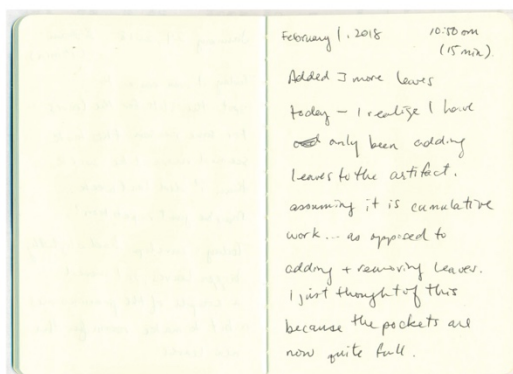 February 1, 2018 10:50 am
(15 min).
Added 3 more leaves
today – I realize I have
only been adding
leaves to the artifact.
assuming it is cumulative
work... as opposed to
adding + removing leaves.
I just thought of this
because the pockets are
now quite full.